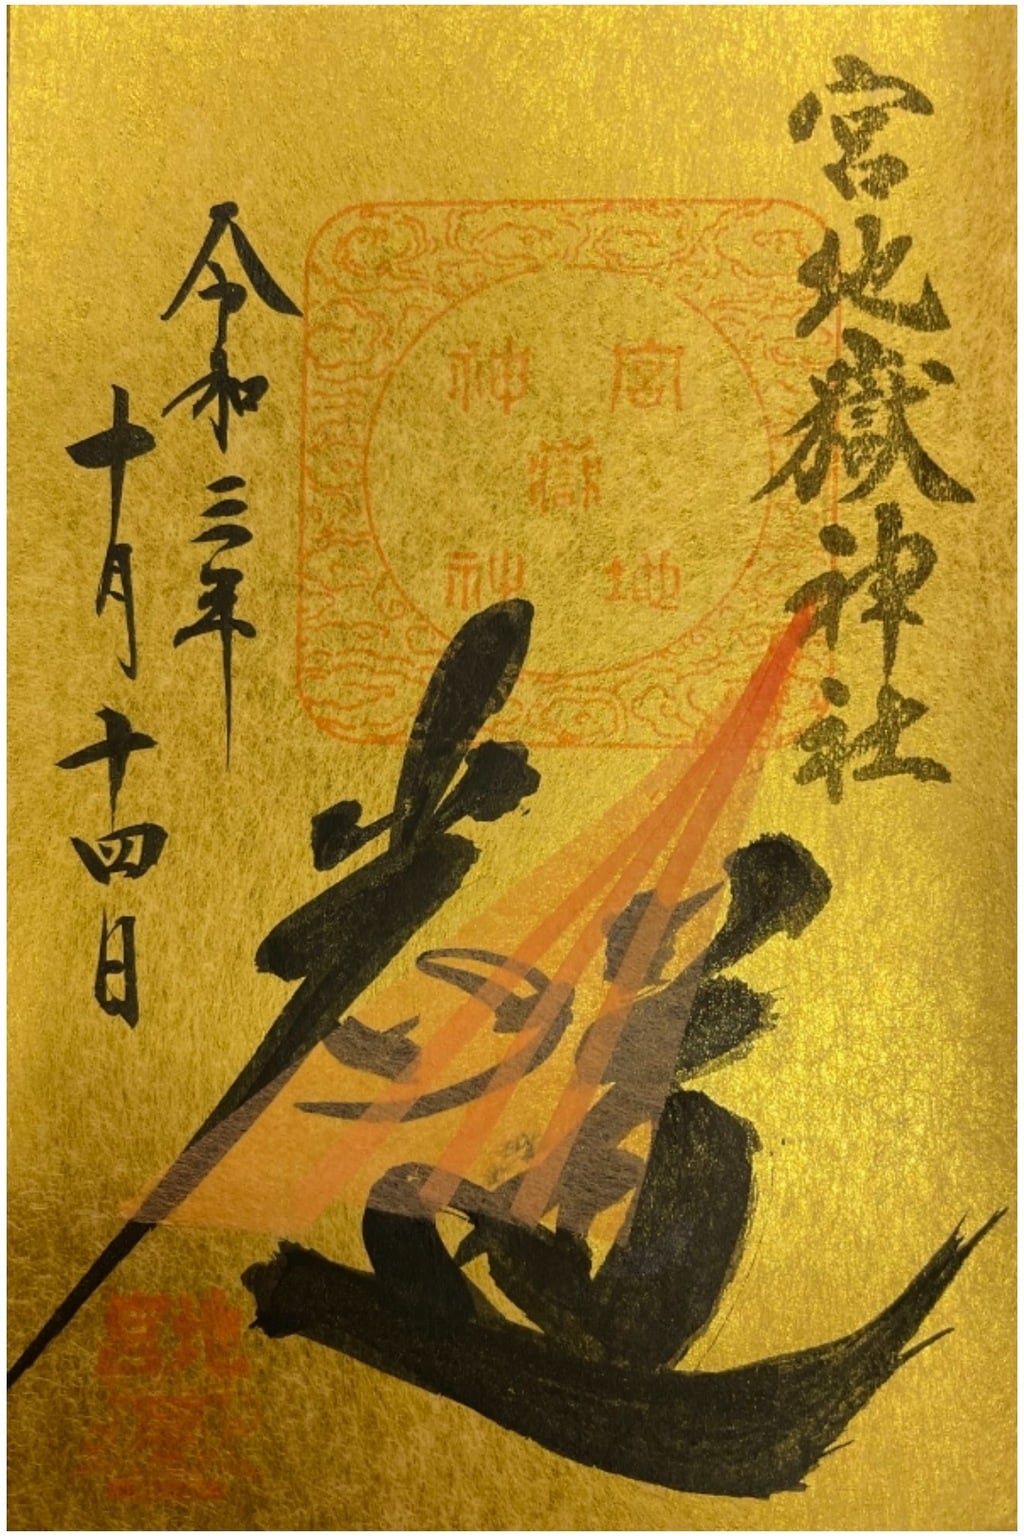 宮地嶽神社
宮地嶽神社
光の道
令和三年
十月十四日
宮地